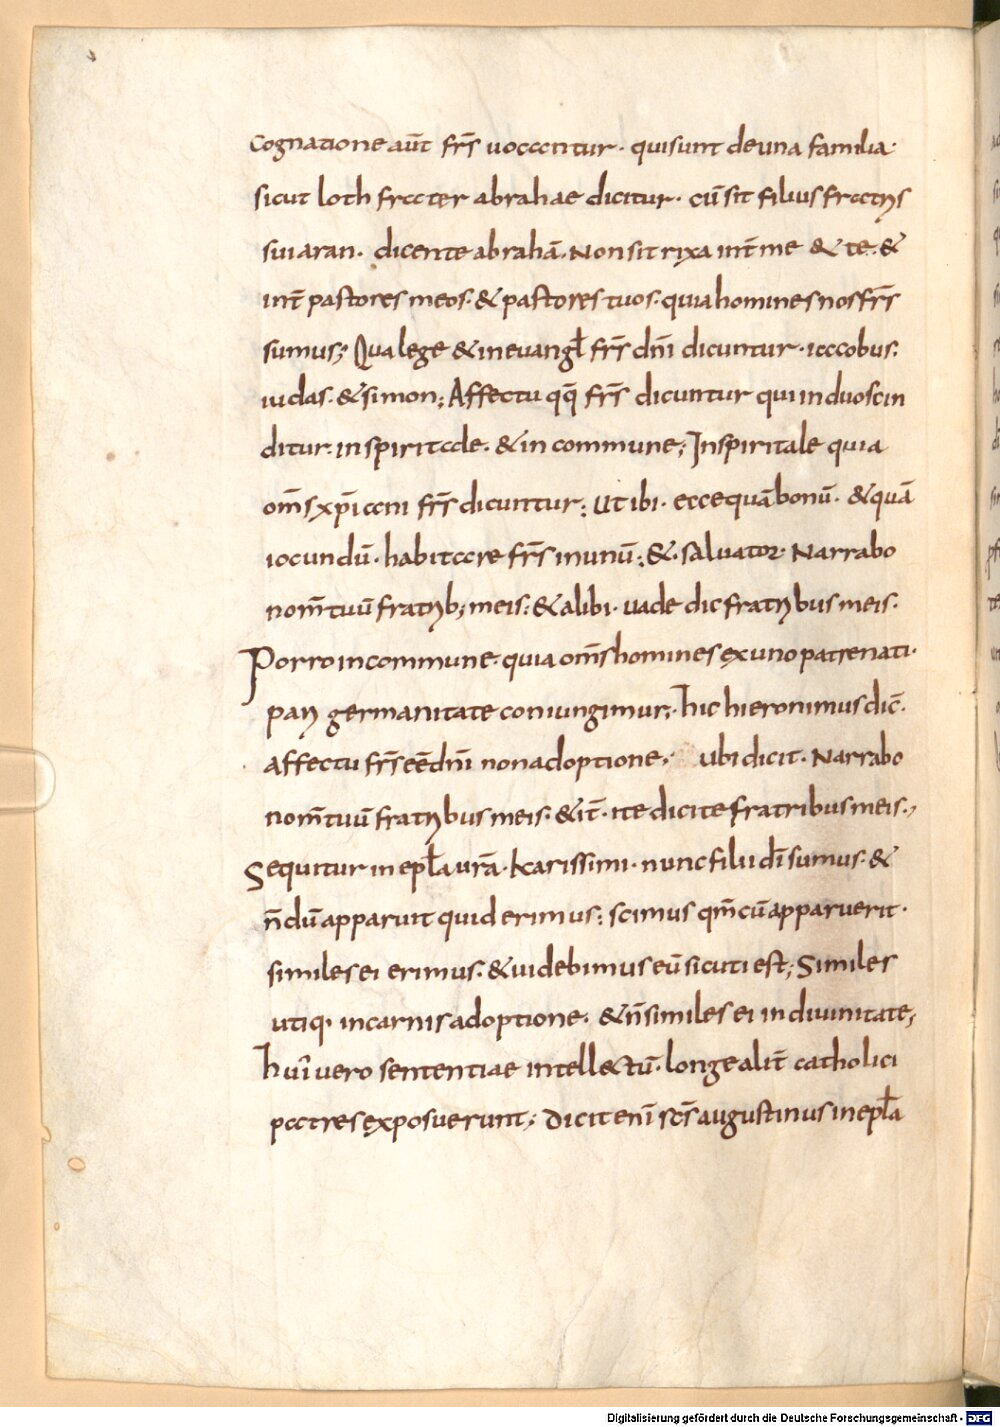 Cognatione aut̄ frs̄ uocantur· qui sunt de una familia·
sicut loth frater abrahae dicitur· cū sit filius fratris
sui aran· dicente abrahā· Non sit rixa int̄ me & te· &
int̄ pastores meos· & pastores tuos· quia homines nos frs̄
sumus; Qua lege & in euangł frs̄ dn̄i dicuntur· iacobus·
iudas· & simon; Affectu qq̄ frs̄ dicuntur qui in duo scin
ditur· in spiritale· & in commune; In spiritale quia
om̄s xp̄iani frs̄ dicuntur; Ut ibi· ecce quā bonū· & quā
iocundū· habitare frs̄ in unū; & saluator· Narrabo
nom̄ tuū fratrib; meis; & alibi· uade dic fratribus meis·
Porro in commune· quia om̄s homines ex uno patre nati·
pari germanitate coniungimur; hic hieronimus dic̄·
affectu frs̄ eē dn̄i non adoptione; ubi dicit· Narrabo
nom̄ tuū fratribus meis· & it̄· ite dicite fratribus meis·,
Sequitur in epła ur̄a· karissimi· nunc filii dī sumus· &
n̄dū apparuit quid erimus; scimus qm̄ cū apparuerit·
similes ei erimus· & uidebimus eū sicuti est; Similes
utiq· in carnis adoptione· & n̄ similes ei in diuinitate;
huī uero sententiae intellectū· longe alit̄ catholici
patres exposuerunt; Dicit enī scs̄ augustinus in epła
Digitalisierung gefördert durch die Deutsche Forschungsgemeinschaft - DFG